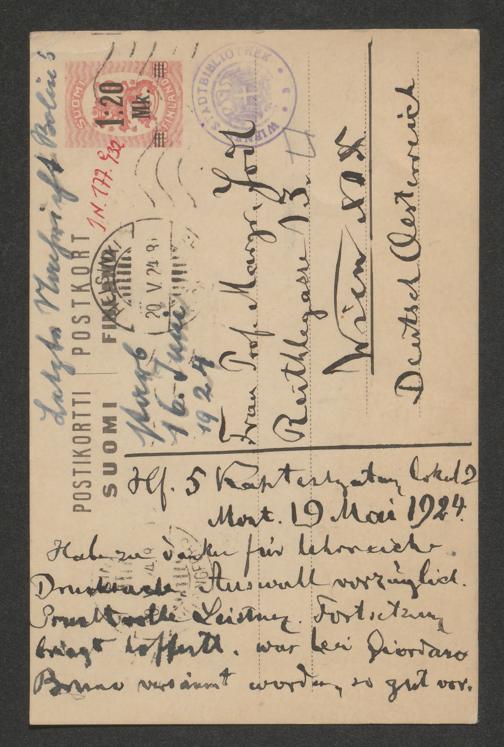 SUOMI
FINLAND
1:20
Mk.
STADTBIBLIOTHEK
WIEN
I.N. 177.932
Letzte Nachricht Bolin's
POSTIKORTTI POSTKORT
SUOMI FINLAND
20. V. 24
starb
16. Juni
1924
Frau Prof. Margar. Jodl
Reithlegasse 13.
Wien XIX
Deutsch Oesterreich
Hf. 5 Kaptensgatan, lokal 2
Mont. 19 Mai 1924.
Habe zu danken für lehrreiche
Drucksache. Auswahl vorzüglich.
Leistung. Fortsetzung
bringt hoffentl. was bei Giordano
Bruno versäumt worden, so gut vor.